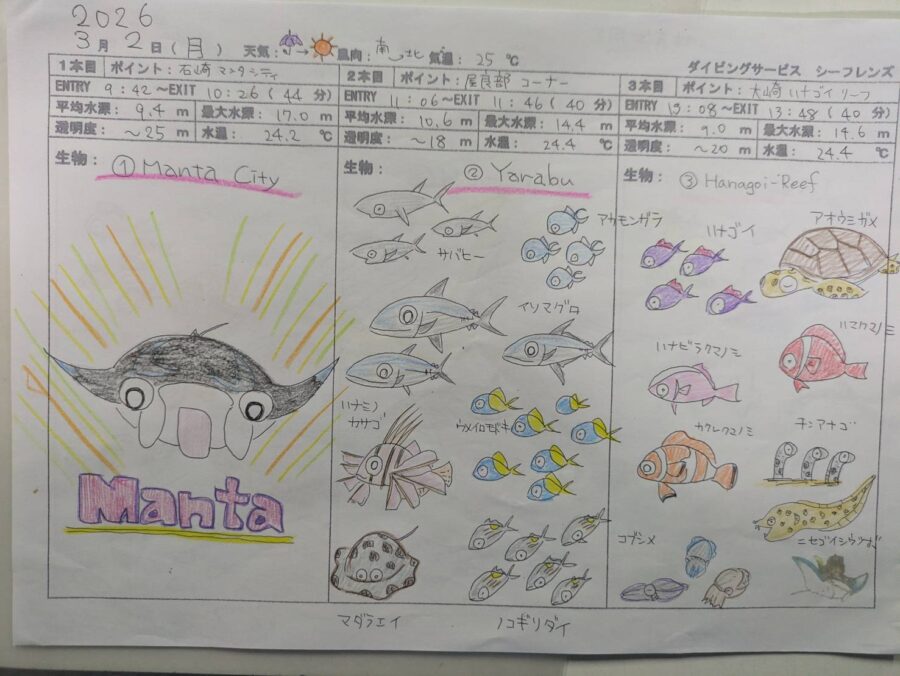 2026
3月2日(月) 天気: → 風向:南→北 気温:25℃
ダイビングサービス シーフレンズ
1本目 ポイント:石崎 マンタシティ
ENTRY 9:42~EXIT 10:26(44分)
平均水深: 9.4 m 最大水深: 17.0 m
透明度: ~25 m 水温: 24.2 ℃
生物: ① Manta City
Manta
2本目 ポイント:屋良部 コーナー
ENTRY 11:06~EXIT 11:46(40分)
平均水深: 10.6 m 最大水深: 14.4 m
透明度: ~18 m 水温: 24.4 ℃
生物: ② Yarabu
アカモンガラ
サバヒー
イソマグロ
ハナミノ
カサゴ
ウメイロモドキ
マダラエイ
ノコギリダイ
3本目 ポイント:大崎 ハナゴイリーフ
ENTRY 13:08~EXIT 13:48(40分)
平均水深: 9.0 m 最大水深: 14.6 m
透明度: ~20 m 水温: 24.4 ℃
生物: ③ Hanagoi-Reef
ハナゴイ
アオウミガメ
ハマクマノミ
ハナビラクマノミ
カクレクマノミ
チンアナゴ
ニセゴイシウツボ
コブシメ